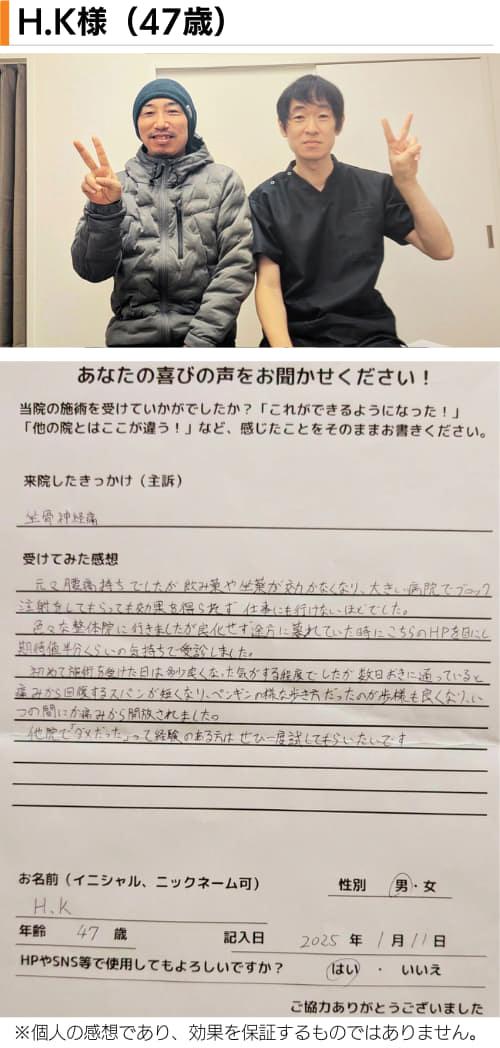 H.K様（47歳）
あなたの喜びの声をお聞かせください！
当院の施術を受けていかがでしたか？「これができるようになった！」
「他の院とはここが違う！」など、感じたことをそのままお書きください。
来院したきっかけ（主訴）
坐骨神経痛
受けてみた感想
元々腰痛持ちでしたが飲み薬や坐薬が効かなくなり、大きい病院でブロック
注射をしてもらっても効果を得られず仕事にも行けないほどでした。
色々な整体院に行きましたが良化せず途方に暮れていた時にこちらのHPを目にし
期待値半分くらいの気持ちで受診しました。
初めて施術を受けた日は多少良くなった気がする程度でしたが数日おきに通っていると
痛みから回復するスパンが短くなり、ペンギンの様な歩き方だったのが歩様も良くなり、い
つの間にか痛みから開放されました。
他院で「ダメだった」って経験のある方はぜひ一度試してもらいたいです
お名前（イニシャル、ニックネーム可） 性別 男・女
H.K
年齢 47 歳 記入日 2025 年 1 月 11 日
HPやSNS等で使用してもよろしいですか？ はい ・ いいえ
ご協力ありがとうございました
※個人の感想であり、効果を保証するものではありません。